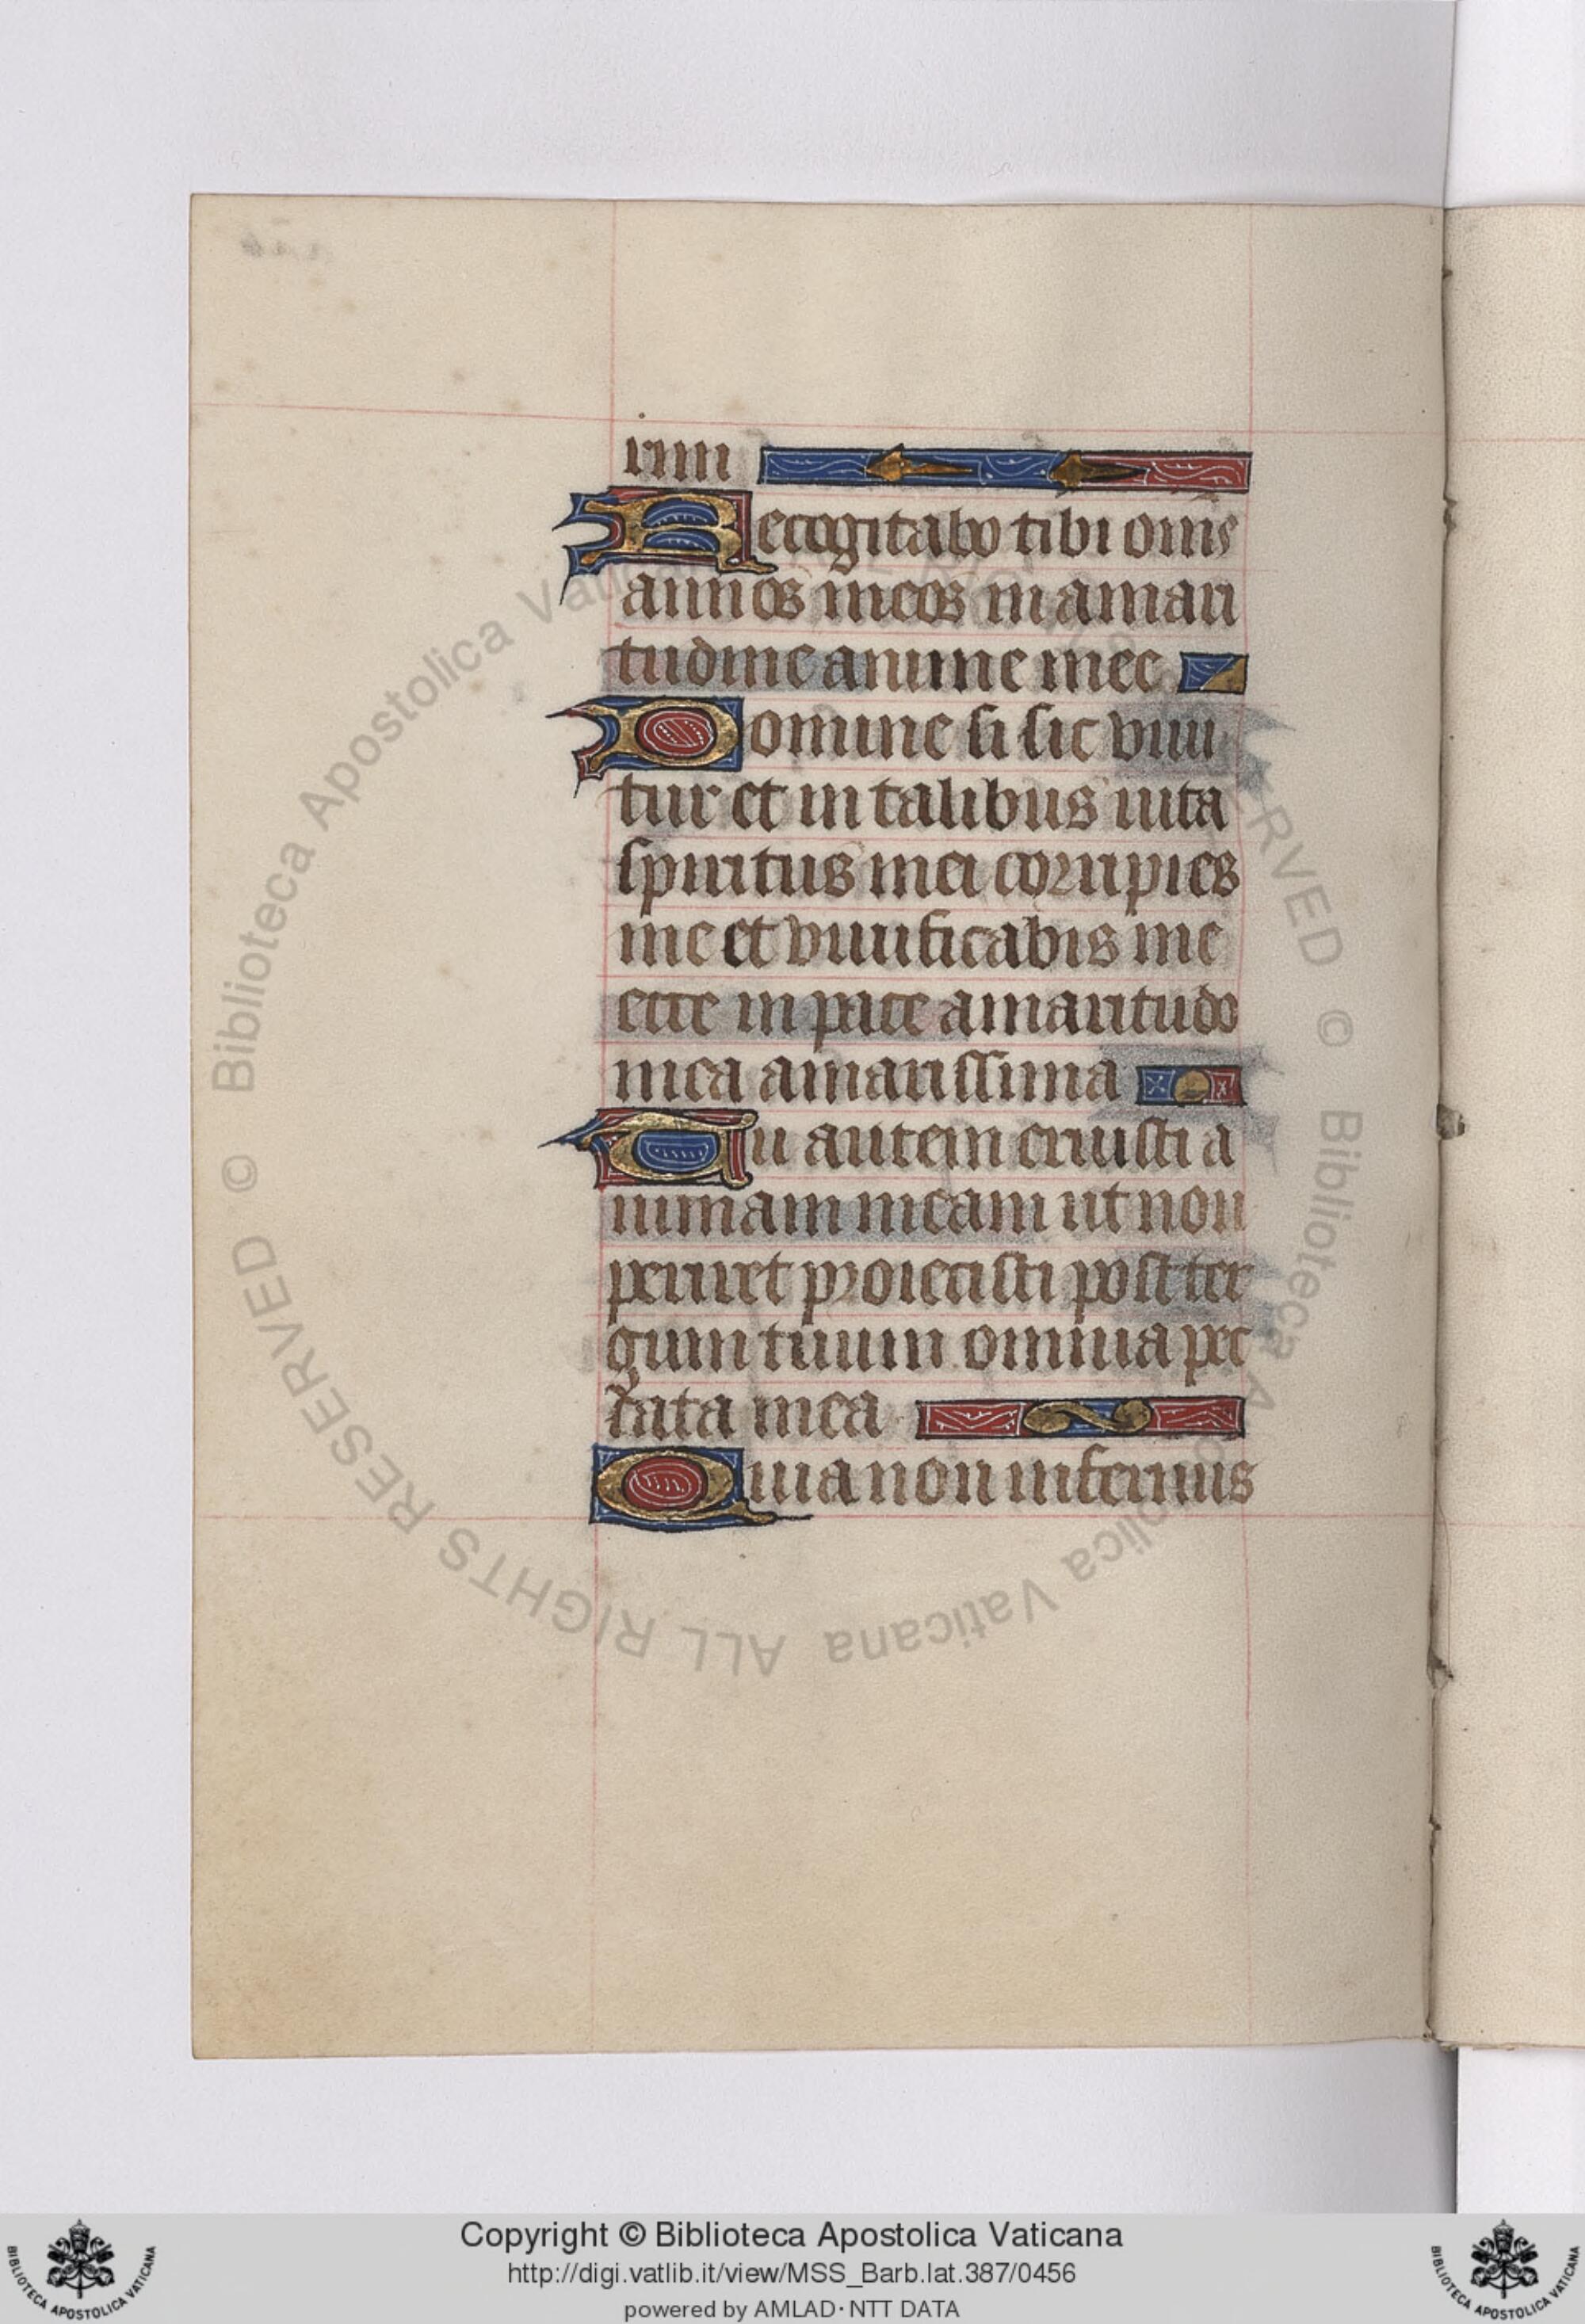 rim
Recogitabo tibi om̄s
annos meos in amari
tudine anime mee
Domine si sic viui
tur et in talibus uita
spiritus mei corripies
me et viuificabis me
ecce in pace amaritudo
mea amarissima
Tu autem eruisti a
nimam meam ut non
periret proiecisti post ter
gum tuum omnia pec
cata mea
Quia non infernus
© Biblioteca Apostolica Vaticana ALL RIGHTS RESERVED
© Biblioteca Apostolica Vaticana ALL RIGHTS RESERVED
Copyright © Biblioteca Apostolica Vaticana
http://digi.vatlib.it/view/MSS_Barb.lat.387/0456
powered by AMLAD·NTT DATA
BIBLIOTECA APOSTOLICA VATICANA
BIBLIOTECA APOSTOLICA VATICANA